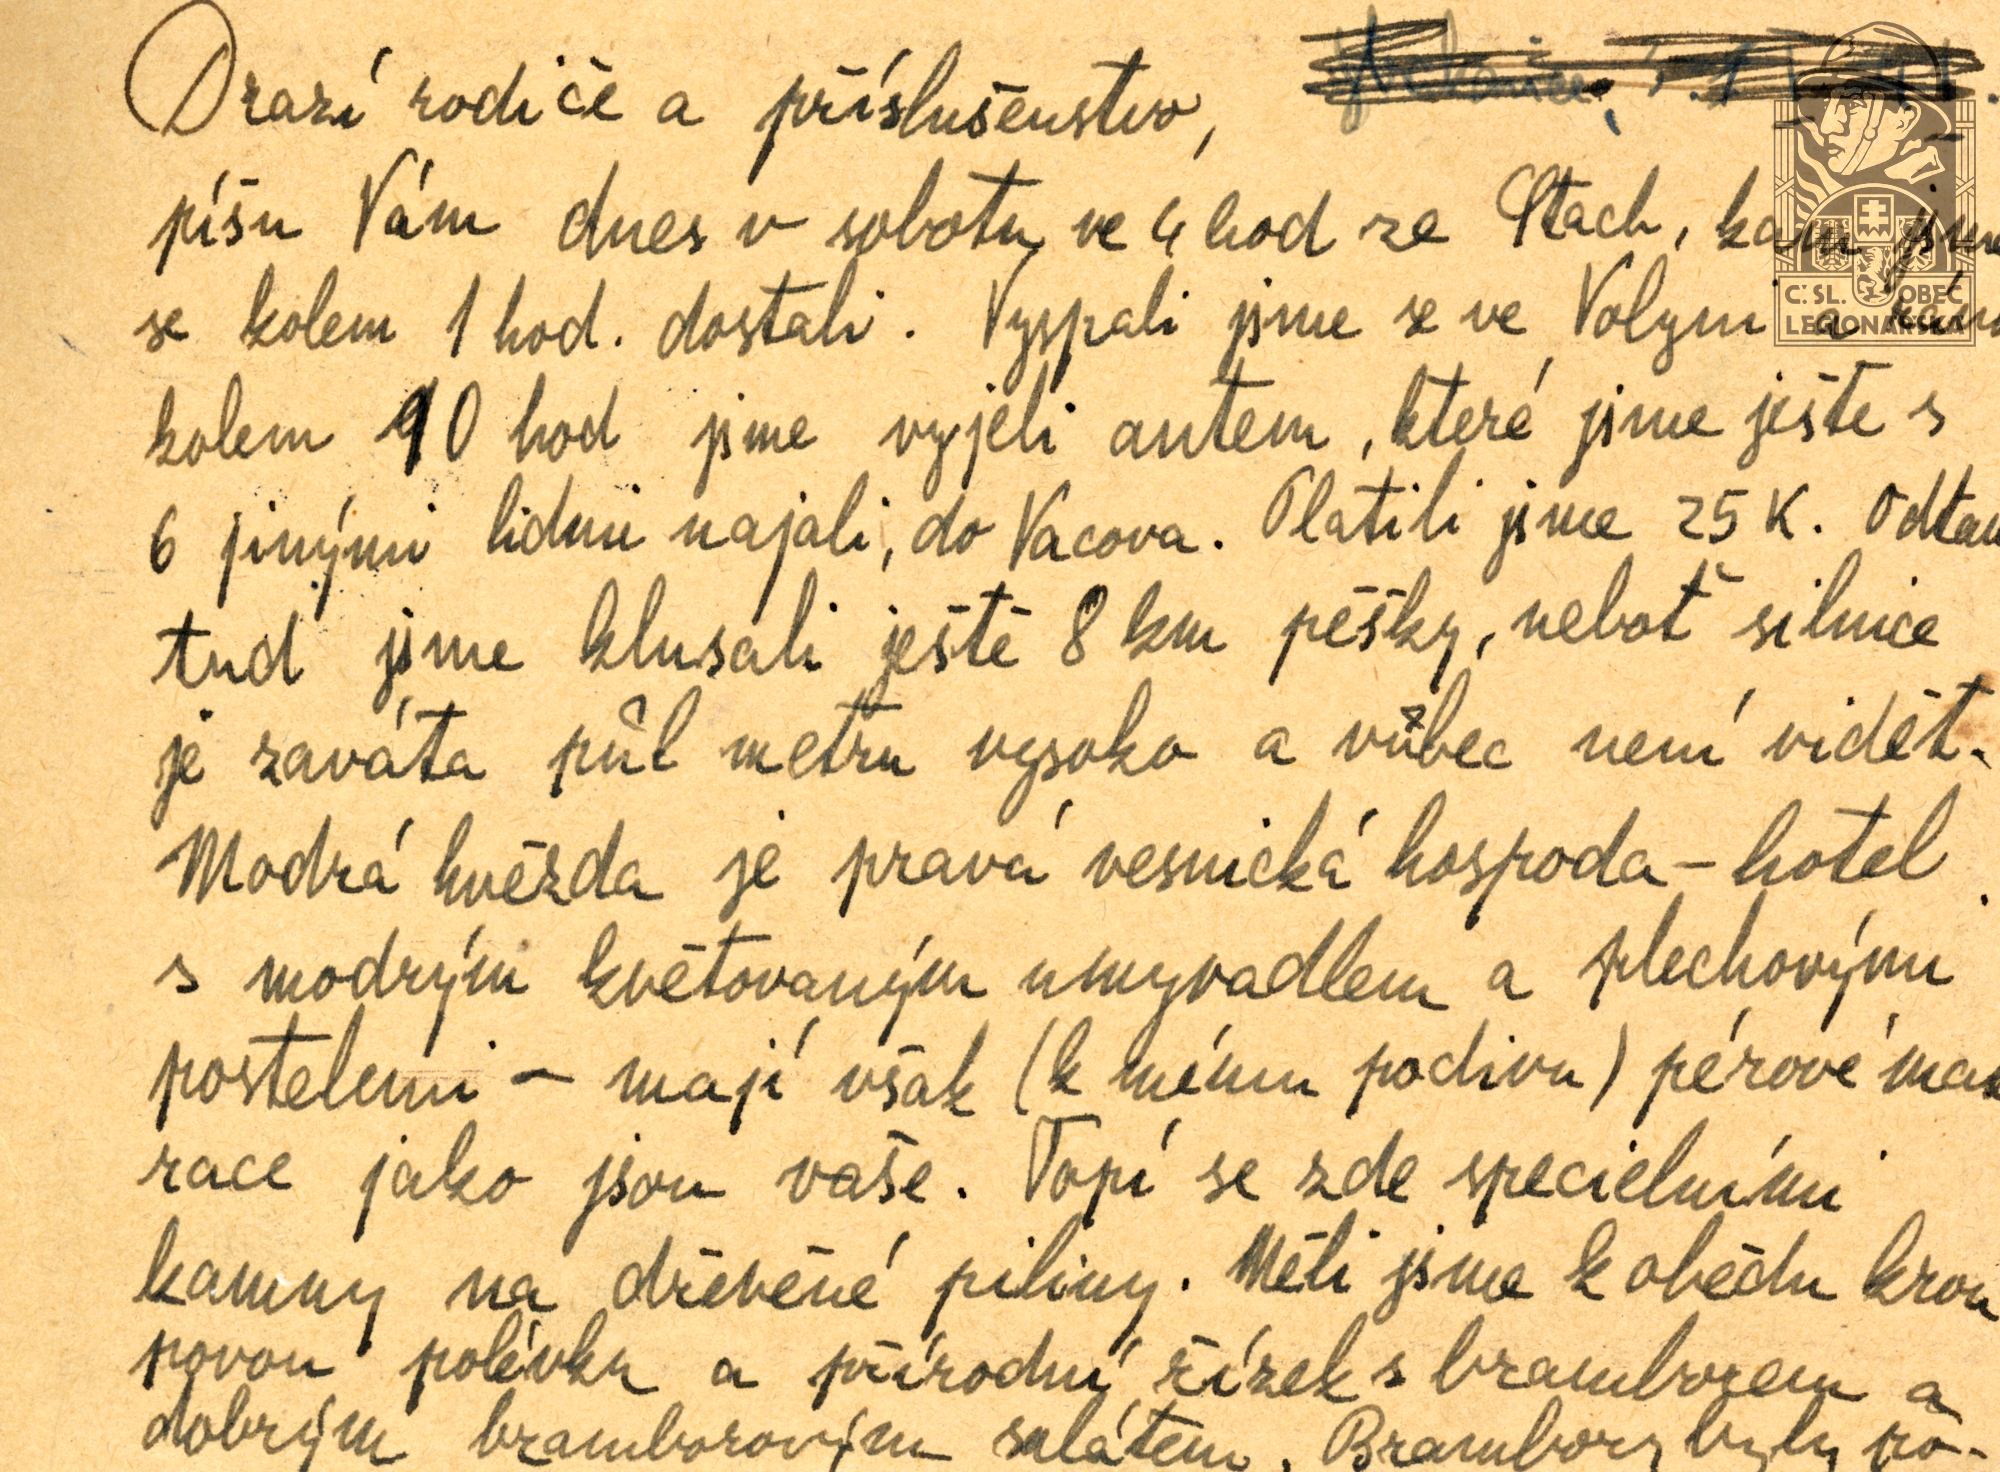 Drazí rodiče a příslušenstvo,
píšu Vám dnes v sobotu ve 4 hod ze Stach, kam jsme
se kolem 1 hod. dostali. Vyspali jsme se ve Volyni a
kolem 10 hod jsme vyjeli autem, které jsme ještě s
6 jinými lidmi najali, do Vacova. Platili jsme 25 K. Odtam
tud jsme klusali ještě 8 km pěšky, neboť silnice
je zaváta půl metru vysoko a vůbec není vidět.
Modrá hvězda je pravá vesnická hospoda – hotel
s modrým květovaným umyvadlem a plechovými
postelemi – mají však (k mému podivu) pérové mat
race jako jsou vaše. Topí se zde specielními
kamny na dřevěné piliny. Měli jsme k obědu krou
povou polévku a přírodní řízek s bramborem a
dobrým bramborovým salátem. Brambory byly po-
Č. SL. OBEC
LEGIONÁŘSKÁ